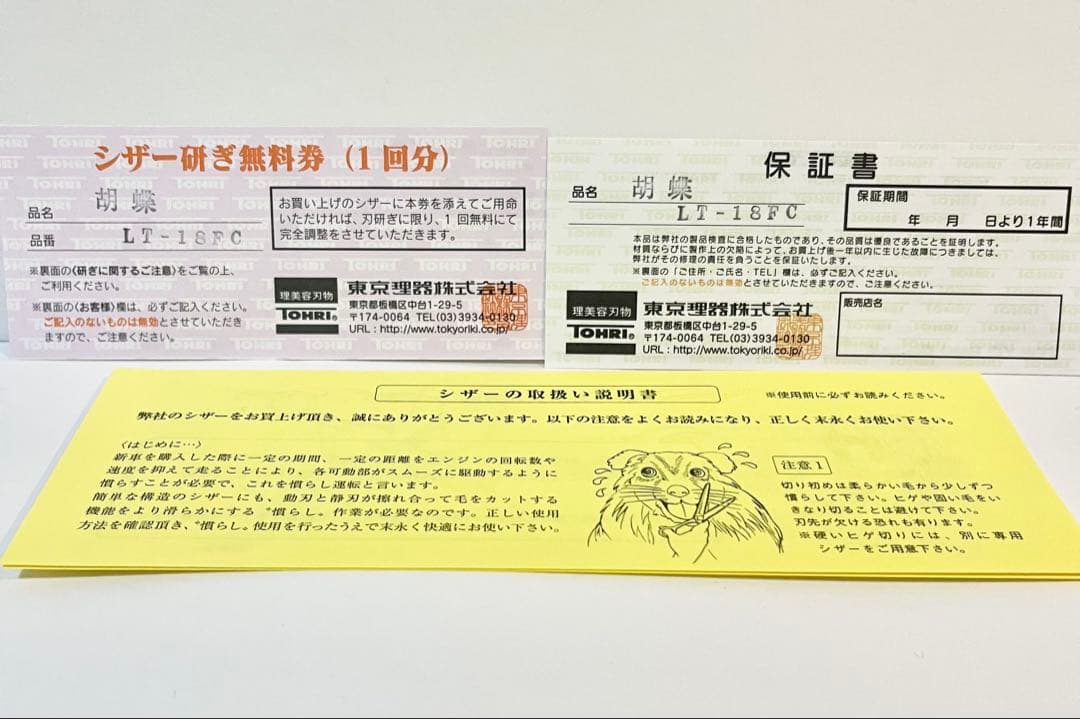 シザー研ぎ無料券（1回分）
品名 胡蝶
品番 LT-18FC
お買い上げのシザーに本券を添えてご用命
いただければ、刃研ぎに限り、1回無料にて
完全調整をさせていただきます。
※裏面の〈研ぎに関するご注意〉をご覧の上、
ご利用ください。
※裏面の〈お客様〉欄は、必ずご記入ください。
ご記入のないものは無効とさせていただき
ますので、ご注意ください。
理美容刃物
TOHRI®
東京理器株式会社
東京都板橋区中台1-29-5
〒174-0064 TEL(03)3934-0130
URL：http://www.tokyoriki.co.jp/
保証書
品名 胡蝶
LT-18FC
保証期間
年 月 日より1年間
本品は弊社の製品検査に合格したものであり、その品質は優良であることを証明します。
材質ならびに製作上の欠陥によって、お買上げ後一年以内に生じた故障につきましては、
弊社がその修理の責任を負うことを保証いたします。
※裏面の「ご住所・ご氏名・TEL」欄は、必ずご記入ください。
ご記入のないものは無効とさせていただきますので、ご注意ください。
理美容刃物
TOHRI®
東京理器株式会社
東京都板橋区中台1-29-5
〒174-0064 TEL(03)3934-0130
URL：http://www.tokyoriki.co.jp/
販売店名
シザーの取扱い説明書
※使用前に必ずお読みください。
弊社のシザーをお買上げ頂き、誠にありがとうございます。以下の注意をよくお読みになり、正しく末永くお使い下さい。
〈はじめに…〉
新車を購入した際に一定の期間、一定の距離をエンジンの回転数や
速度を抑えて走ることにより、各可動部がスムーズに駆動するように
慣らすことが必要で、これを慣らし運転と言います。
簡単な構造のシザーにも、動刃と静刃が擦れ合って毛をカットする
機能をより滑らかにする〝慣らし〟作業が必要なのです。正しい使用
方法を確認頂き、〝慣らし〟使用を行ったうえで末永く快適にお使い下さい。
注意1
切り初めは柔らかい毛から少しずつ
慣らして下さい。ヒゲや固い毛をい
きなり切ることは避けて下さい。
刃先が欠ける恐れも有ります。
※硬いヒゲ切りには、別に専用
シザーをご用意下さい。